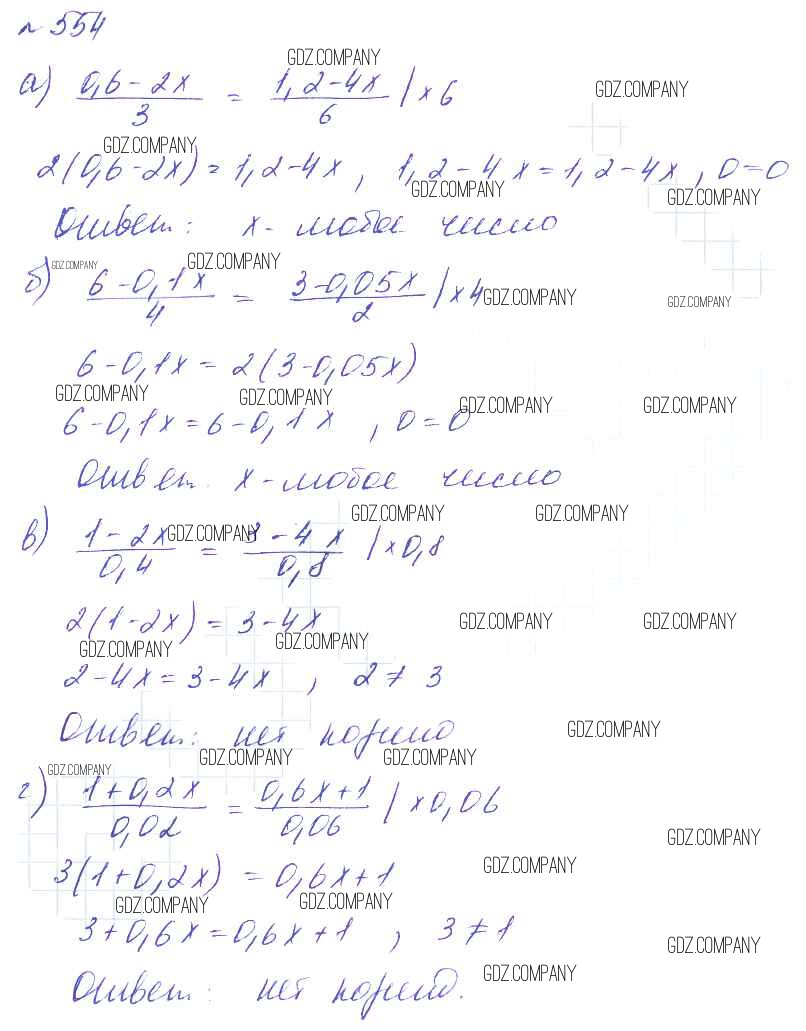 № 554
GDZ.COMPANY
а) (0,6-2x)/3 = (1,2-4x)/6 | ×6
GDZ.COMPANY
GDZ.COMPANY
2(0,6-2x)=1,2-4x, 1,2-4x=1,2-4x, 0=0
GDZ.COMPANY
GDZ.COMPANY
Ответ: x - любое число
GDZ.COMPANY GDZ.COMPANY
б) (6-0,1x)/4 = (3-0,05x)/2 | ×4
GDZ.COMPANY GDZ.COMPANY
6-0,1x = 2(3-0,05x)
GDZ.COMPANY GDZ.COMPANY GDZ.COMPANY GDZ.COMPANY
6-0,1x=6-0,1x, 0=0
Ответ. x - любое число
GDZ.COMPANY GDZ.COMPANY
в) (1-2x)/0,4 = (3-4x)/0,8 | ×0,8
GDZ.COMPANY
2(1-2x) = 3-4x
GDZ.COMPANY GDZ.COMPANY
GDZ.COMPANY GDZ.COMPANY
2-4x=3-4x, 2≠3
Ответ: нет корней
GDZ.COMPANY
GDZ.COMPANY GDZ.COMPANY GDZ.COMPANY
г) (1+0,2x)/0,02 = (0,6x+1)/0,06 | ×0,06
GDZ.COMPANY
3(1+0,2x) = 0,6x+1
GDZ.COMPANY
GDZ.COMPANY GDZ.COMPANY
3+0,6x=0,6x+1, 3≠1
GDZ.COMPANY
Ответ: нет корней.
GDZ.COMPANY